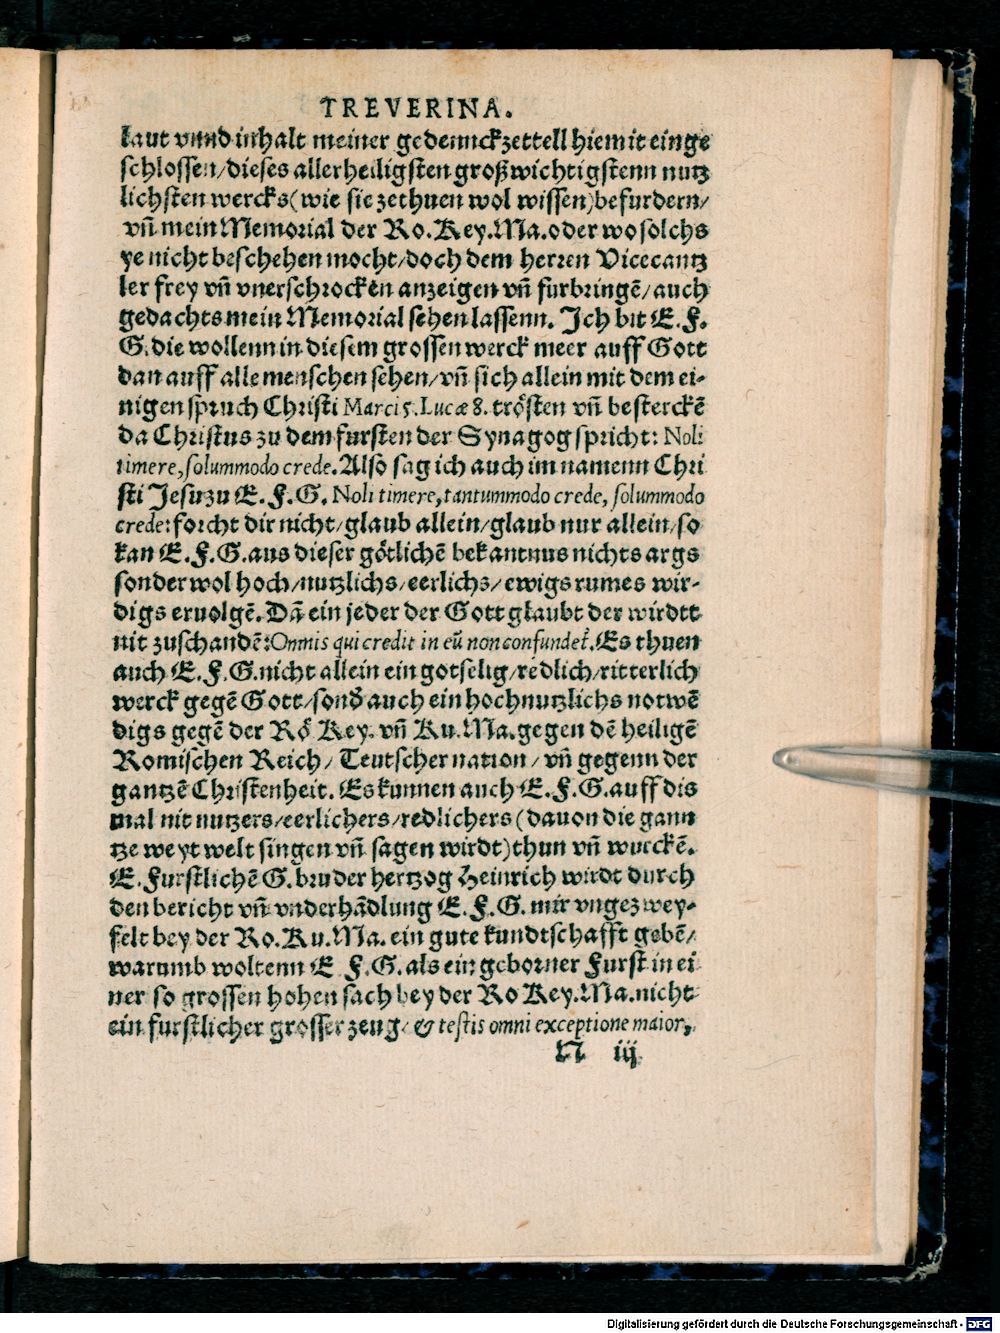 TREVERINA.
laut vnnd inhalt meiner gedennckzettell hiemit einge
schlossen/dieses allerheiligsten großwichtigstenn nutz
lichsten wercks(wie sie zethuen wol wissen)befurdern/
vñ mein Memorial der Ro.Key.Ma.oder wo solchs
ye nicht beschehen mocht/doch dem herren Vicecantz
ler frey vñ vnerschrocken anzeigen vñ furbringē/auch
gedachts mein Memorial sehen lassenn. Ich bit E.F.
G.die wollenn in diesem grossen werck meer auff Gott
dan auff alle menschen sehen/vñ sich allein mit dem ei-
nigen spruch Christi Marci 5.Lucæ 8. trösten vñ besterckē
da Christus zu dem fursten der Synagog spricht: Noli
timere,solummodo crede.Also sag ich auch im namenn Chri
sti Jesu zu E.F.G. Noli timere,tantummodo crede, solummodo
crede:forcht dir nicht/glaub allein/glaub nur allein/so
kan E.F.G.aus dieser götlichē bekantnus nichts args
sonder wol hoch/nutzlichs/eerlichs/ewigs rumes wir-
digs eruolgē. Dā ein jeder der Gott glaubt der wirdtt
nit zuschandē:Omnis qui credit in eū non confundet.Es thuen
auch E.F.G.nicht allein ein gotselig/redlich/ritterlich
werck gegē Gott/sond auch ein hochnutzlichs notwē
digs gegē der Rö Key. vñ Ku.Ma.gegen dē heiligē
Romischen Reich/ Teutscher nation/vñ gegenn der
gantzē Christenheit. Es kunnen auch E.F.G.auff dis
mal nit nutzers/eerlichers/redlichers(dauon die gann
tze weyt welt singen vñ sagen wirdt)thun vñ wurckē.
E.Furstlichē G.bruder hertzog Heinrich wirdt durch
den bericht vñ vnderhādlung E.F.G.mir vngezwey-
felt bey der Ro.Ku.Ma.ein gute kundtschafft gebē/
warumb woltenn E F.G.als ein geborner Furst in ei
ner so grossen hohen sach bey der Ro Key.Ma.nicht
ein furstlicher grosser zeug/ & testis omni exceptione maior,
N iij
Digitalisierung gefördert durch die Deutsche Forschungsgemeinschaft - DFG